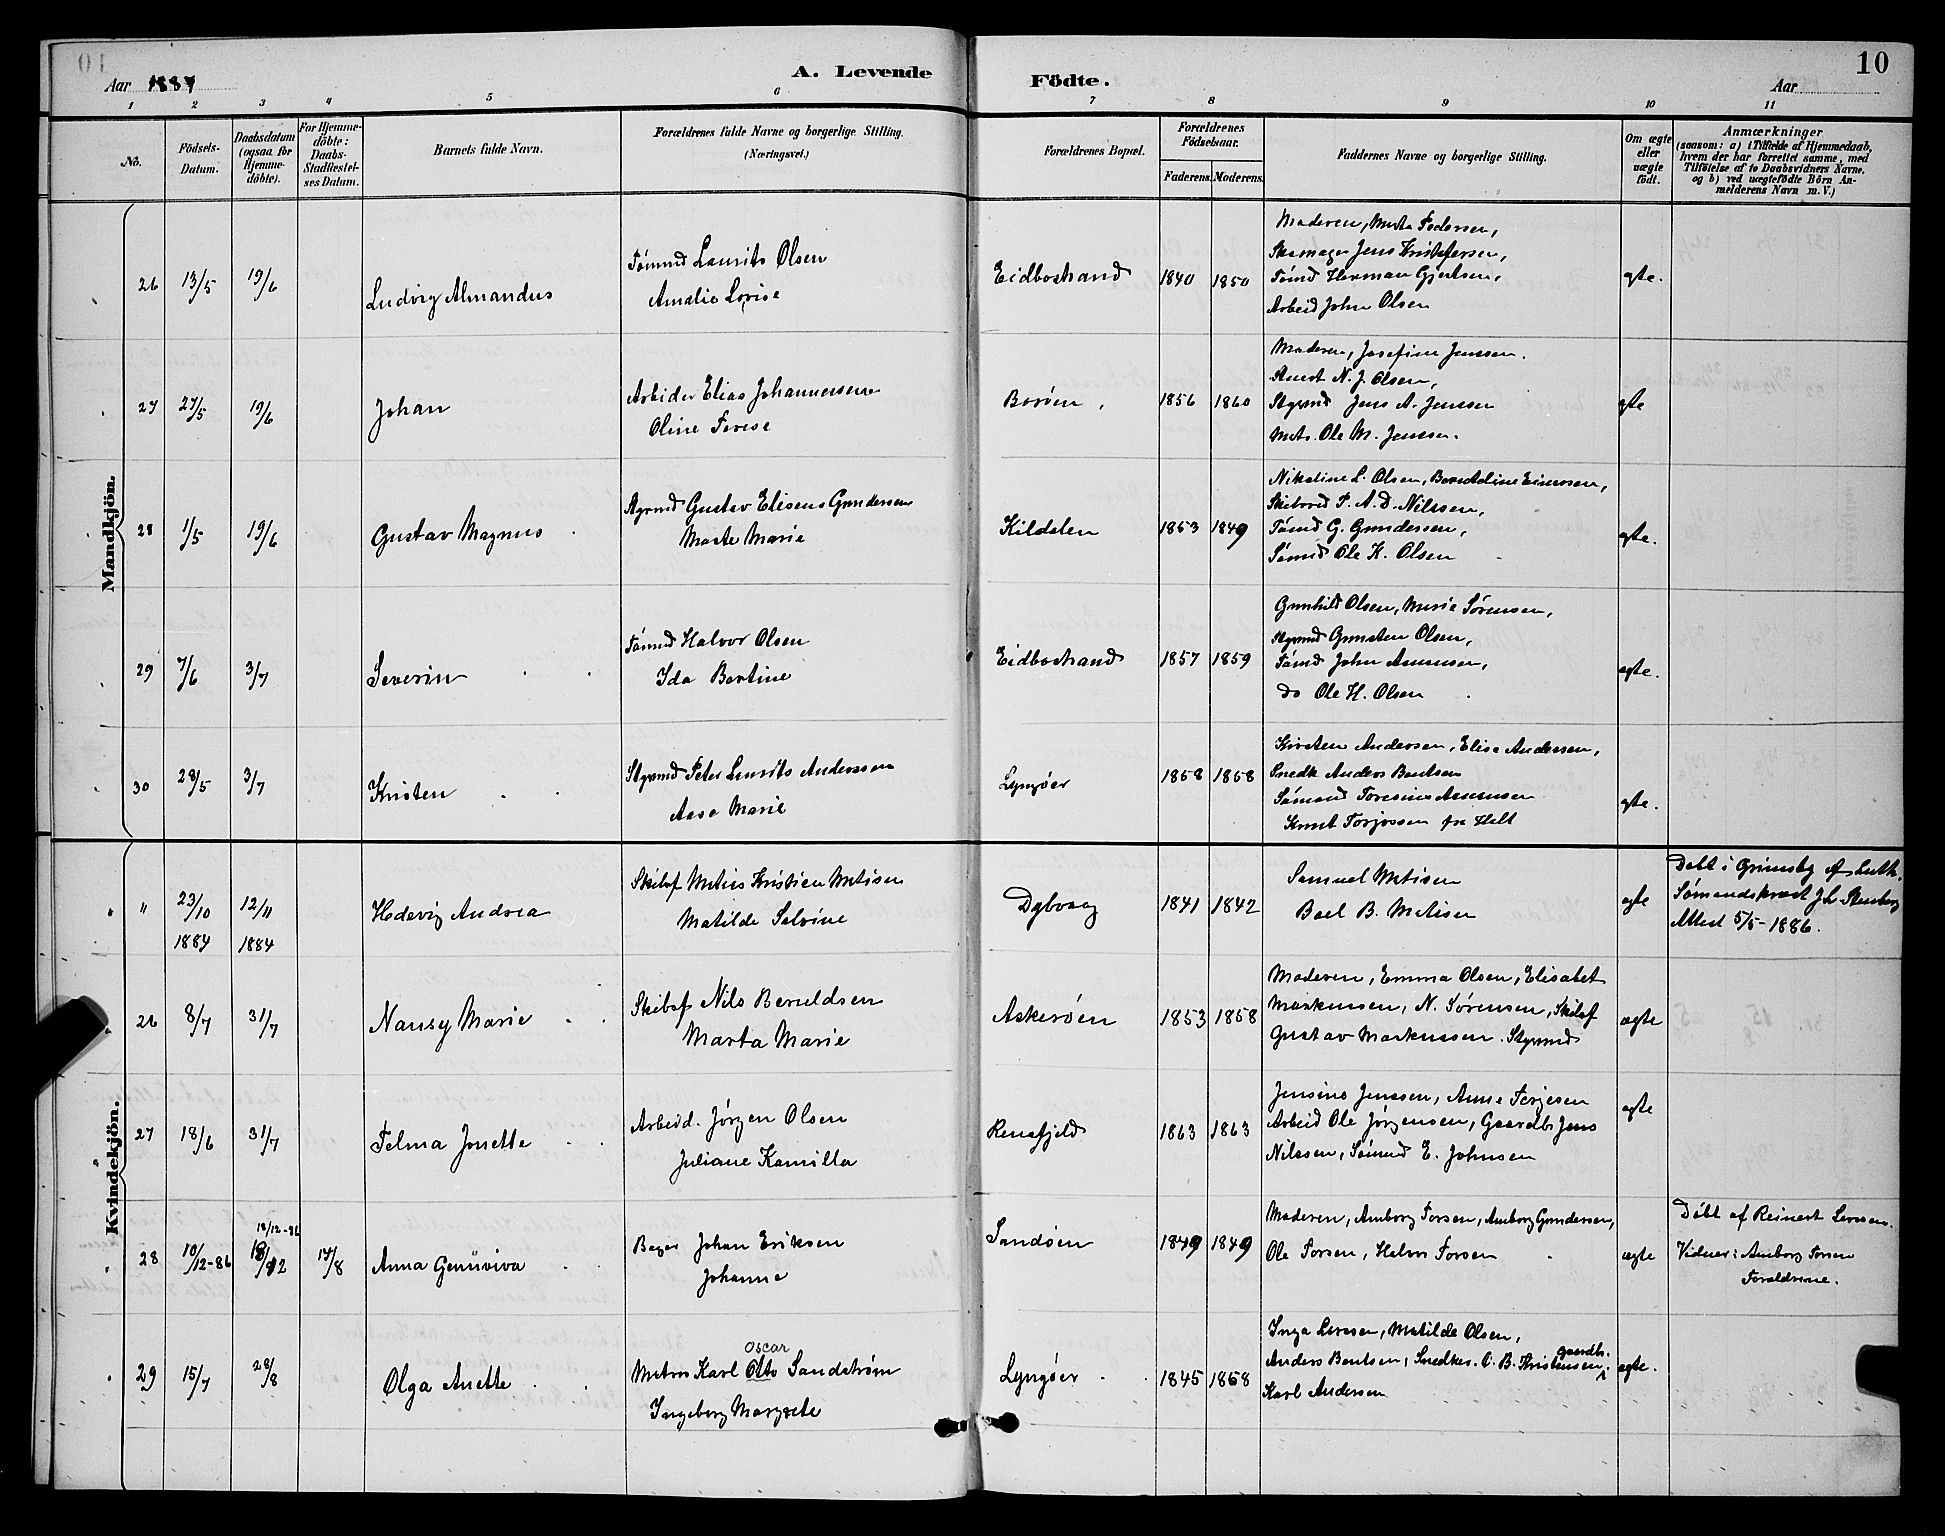 10
Aar 1887 A. Levende Födte. Aar
1 2 3 4 5 6 7 8 9 10 11
No.
Födsels-Datum.
Daabsdatum (ogsaa for Hjemme-döbte).
For Hjemme-döbte: Daabs-Stadfæstel-ses Datum.
Barnets fulde Navn.
Forældrenes fulde Navne og borgerlige Stilling. (Næringsvei.)
Forældrenes Bopæl.
Forældrenes Födselsaar.
Faderens. Moderens.
Faddernes Navne og borgerlige Stilling.
Om ægte eller uægte födt.
Anmærkninger
(saasom: a) i Tilfælde af Hjemmedaab,
hvem der har forrettet samme, med
Tilföielse af to Daabsvidners Navne,
og b) ved uægtefödte Börn An-
melderens Navn m. V.)
Mandkjön.
26 13/5 19/6 Ludvig Almandus
Tømmd Laurits Olsen
Amalie Lovise
Eidbostrand 1840 1850
Moderen, Marta Pedersen,
Skomager Jens Kristofersen,
Tømd Herman Gjertsen,
Arbeid John Olsen
ægte.
27 27/5 19/6 Johan
Arbeider Elias Johannessen
Oline Terese
Borøen 1856 1860
Moderen, Josefine Jenssen.
N. J. Olsen,
Styrmd Jens A. Jenssen
Matr. Ole M. Jenssen.
ægte
28 1/5 19/6 Gustav Magnus
Styrmd Gustav Eliseus Gundersen
Marte Marie
Kildalen 1853 1849
Nikoline L. Olsen, Berntoline Einersen,
T. A. D. Nilssen,
Tømd G. Gundersen,
Sømd Ole K. Olsen
ægte.
29 7/6 3/7 Severin
Tømmd Halvor Olsen
Ida Bertine
Eidbostrand 1857 1859
Gunhild Olsen, Marie Sørensen,
Styrmd Gunsten Olsen,
Tømd John Asmunsen,
do Ole H. Olsen
ægte.
30 28/5 3/7 Kristen
Styrmd Peter Laurits Anderssen
Aase Marie
Lyngøer 1858 1858
Kirsten Andersen, Elise Andersen,
Snedk Anders Bentsen
Sømand Toresius Asmunsen
Knut Torjussen fra Holt
ægte.
Kvindekjön.
" 23/10 1884 12/11 1884 Hedevig Andrea
Skibsf Matias Kristian Matisen
Matilde Salvine
Dybvaag 1841 1842
Samuel Matisen
Boel B. Matisen
ægte
Døbt i Grimsby af luth.
Sømandspræst J. L. Stenberg
Attest 5/5-1886.
26 8/7 31/7 Nansy Marie
Skibsf Nils Beruldsen
Marta Marie
Askerøen 1853 1858
Moderen, Emma Olsen, Elisabet
Markussen, N. Sørensen, Skibsf
Gustav Markussen. Styrmd
ægte
27 18/6 31/7 Telma Jonette
Arbeid. Jørgen Olsen
Juliane Kamilla
Rensfjeld 1863 1863
Jensine Jenssen, Anne Terjesen
Arbeid Ole Jørgensen, Gaardbr Jens
Nilssen, Sømmd E. Johnsen
ægte
28 10/12-86 18/12-86 18/12 14/8 Anna Genuviva
Bager Johan Eriksen
Johanne
Sandøen 1849 1849
Moderen, Amborg Torsen, Amborg Gundersen,
Ole Torsen, Halvor Torsen
ægte
Døbt af Reinert Larssen.
Vidner: Amborg Torsen
Forældrene.
29 15/7 28/8 Olga Anette
Oscar
Matros Karl Otto Sandstrøm
Ingeborg Margrete
Lyngøer 1845 1858
Inga Larsen, Matilde Olsen,
gaardbr.
Anders Bentsen, Snedker. O. B. Kristensen,
Karl Andersen
ægte.